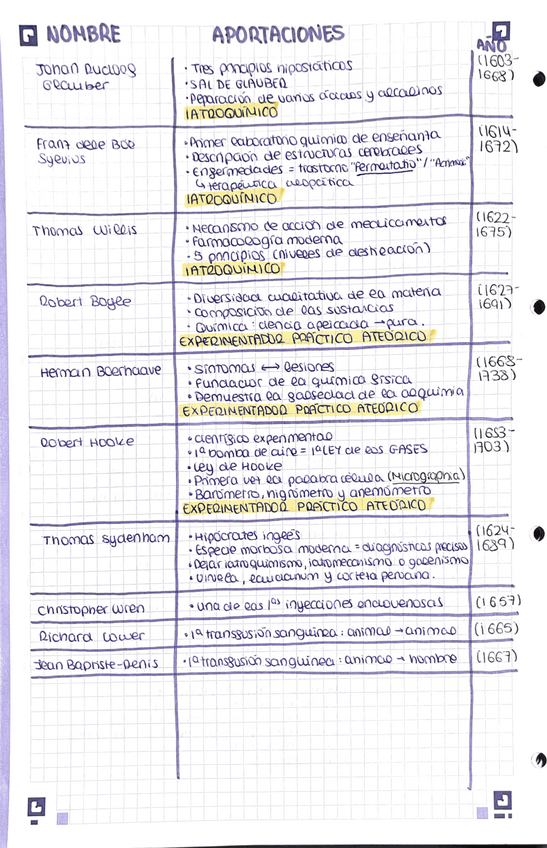 NOMBRE APORTACIONES AÑO
Johan Rudolg Glauber
· Tres principios hipostáticos
· SAL DE GLAUBER
· Peparación de varios ácidos y alcalinos
IATROQUÍMICO
(1603-
1668)
Franz dele Boë
Sylvius
· Primer laboratorio químico de enseñanza
· Descripción de estructuras cerebrales
· Enfermedades = trastorno "Fermentatio"/"Acrimoniae"
↳ terapéutica alopática
IATROQUÍMICO
(1614-
1672)
Thomas Willis
· Mecanismo de acción de medicamentos
· Farmacología moderna
· 5 principios (niveles de destilación)
IATROQUÍMICO
(1622-
1675)
Robert Boyle
· Diversidad cualitativa de la materia
· Composición de las sustancias
· Química: ciencia aplicada → pura.
EXPERIMENTADOR PRÁCTICO ATEÓRICO
(1627-
1691)
Herman Boerhaave
· Síntomas ↔ lesiones
· Fundador de la química física
· Demuestra la falsedad de la alquimia
EXPERIMENTADOR PRÁCTICO ATEÓRICO
(1668-
1738)
Robert Hooke
· Científico experimental
· 1ª bomba de aire = 1ª LEY de los GASES
· Ley de Hooke
· Primera vez la palabra célula (Micrographia)
· Barómetro, higrómetro y anemómetro
EXPERIMENTADOR PRÁCTICO ATEÓRICO
(1653-
1703)
Thomas Sydenham
· Hipócrates inglés
· Especie morbosa moderna = diagnósticos precisos
· Dejar iatroquimismo, iatromecanismo o galenismo
· Viruela, láudanum y corteza peruana.
(1624-
1689)
Christopher Wren
· Una de las 1as inyecciones endovenosas
(1657)
Richard Lower
· 1ª transfusión sanguínea: animal → animal
(1665)
Jean Baptriste-Denis
· 1ª transfusión sanguínea: animal → hombre
(1667)